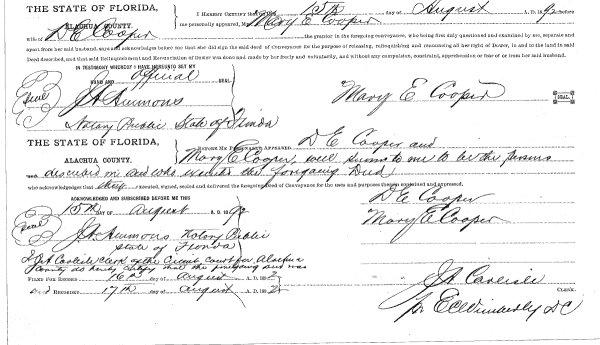 THE STATE OF FLORIDA,
ALACHUA COUNTY.
I HEREBY CERTIFY, That on this 15th day of August A. D. 1892 before
me personally appeared, Mary E Cooper
wife of D E Cooper the grantor in the foregoing conveyance, who being first duly questioned and examined by me, separate and
apart from her said husband, says and acknowledges before me that she did sign the said deed of Conveyance for the purpose of releasing, relinquishing and renouncing all her right of Dower, in and to the land in said
Deed described, and that said Relinquishment and Renunciation of Dower was done and made by her freely and voluntarily, and without any compulsion, constraint, apprehension or fear of or from her said husband.
IN TESTIMONY WHEREOF I HAVE HEREUNTO SET MY
HAND AND official SEAL.
Seal
Mary E Cooper SEAL.
Notary Public State of Florida
THE STATE OF FLORIDA,
ALACHUA COUNTY.
BEFORE ME PERSONALLY APPEARED D E Cooper and
Mary E Cooper, well known to me to be the persons
described in and who executed the foregoing Deed
who acknowledges that they executed, signed, sealed and delivered the foregoing deed of Conveyance for the uses and purposes therein contained and expressed.
ACKNOWLEDGED AND SUBSCRIBED BEFORE ME THIS
15th DAY OF August A. D. 1892
D E Cooper
Mary E Cooper
Seal
Notary Public
State of Florida
I J A Carlisle Clerk of the Circuit Court for Alachua
County do hereby certify that the foregoing deed was
FILED FOR RECORD 16th day of August A. D. 1892
and RECORDED 17th day of August A. D. 1892
J A Carlisle CLERK.
pr E C Wimberly D C